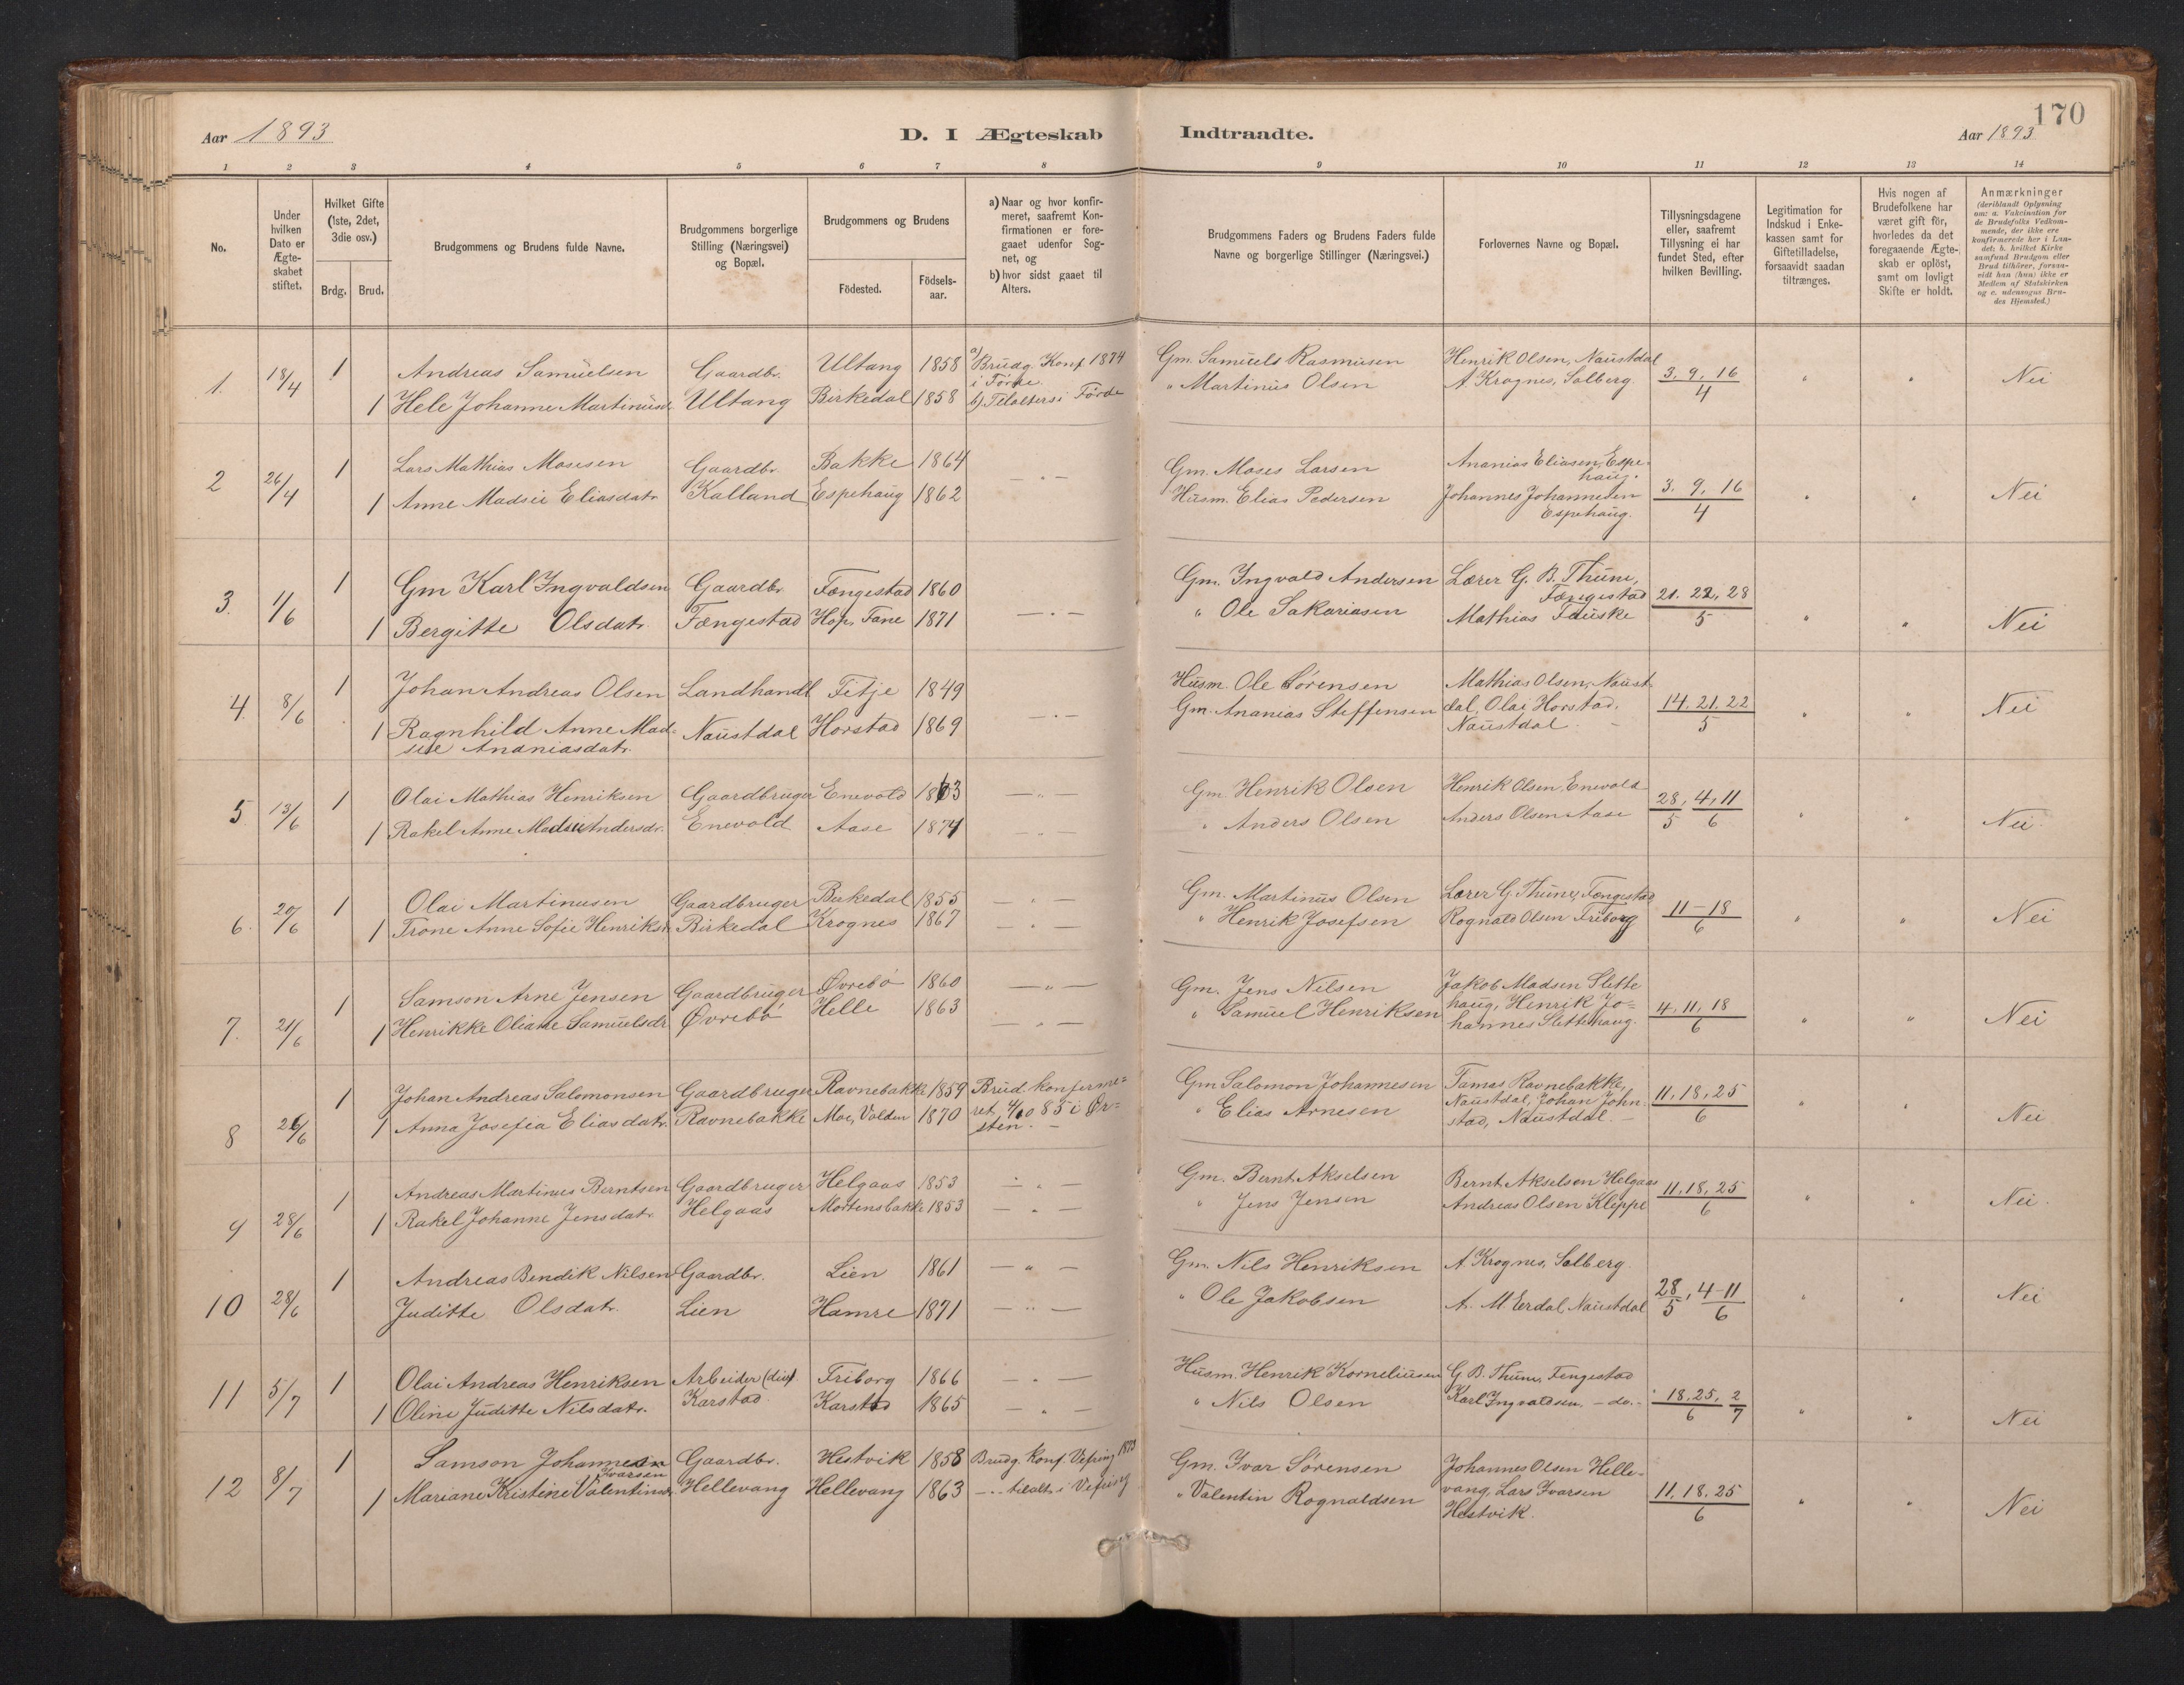 170
Aar 1893
D. I Ægteskab Indtraadte.
Aar 1893
1 2 3 4 5 6 7 8 9 10 11 12 13 14
No.
Under hvilken Dato er Ægte-skabet stiftet.
Hvilket Gifte (1ste, 2det, 3die osv.)
Brdg. Brud.
Brudgommens og Brudens fulde Navne.
Brudgommens borgerlige Stilling (Næringsvei) og Bopæl.
Brudgommens og Brudens
Födested.
Födsels-aar.
a) Naar og hvor konfir-meret, saafremt Kon-firmationen er fore-gaaet udenfor Sog-net, og
b) hvor sidst gaaet til Alters.
Brudgommens Faders og Brudens Faders fulde Navne og borgerlige Stillinger (Næringsvei.)
Forlovernes Navne og Bopæl.
Tillysningsdagene eller, saafremt Tillysning ei har fundet Sted, efter hvilken Bevilling.
Legitimation for Indskud i Enke-kassen samt for Giftetilladelse, forsaavidt saadan tiltrænges.
Hvis nogen af Brudefolkene har været gift för, hvorledes da det foregaaende Ægte-skab er oplöst, samt om lovligt Skifte er holdt.
Anmærkninger
(deriblandt Oplysning om: a. Vakcination for de Brudefolks Vedkom-mende, der ikke ere konfirmerede her i Lan-det; b. hvilket Kirke samfund Brudgom eller Brud tilhörer, forsaa-vidt han (hun) ikke er Medlem af Statskirken og c. udensogns Bru-des Hjemsted.)
1. 18/4 1 Andreas Samuelsen Gaardbr. Ultang 1858 a) Brudg. Konf 1874 i Förde Gm. Samuels Rasmusen Henrik Olsen, Naustdal 3. 9. 16/4 " " Nei
1 Hele Johanne Martinusd. Ultang Birkedal 1858 b) Tilalters i Förde " Martinus Olsen A. Krognes, Solberg.
2 26/4 1 Lars Mathias Mosesen Gaardbr. Bakke 1864 — " — Gm. Moses Larsen Ananias Eliasen, Espe-haug. 3. 9. 16/4 " " Nei
1 Anne Madsie Eliasdatr Kalland Espehaug 1862 Husm. Elias Pedersen Johannes Johannesen Espehaug.
3. 1/6 1 Gm Karl Ingvaldsen Gaardbr. Fængestad 1860 — " — Gm. Ingvald Andersen Lærer G. B. Thune, Fængestad 21. 22, 28/5 " " Nei
1 Bergitte Olsdatr. Fængestad Hop, Fane 1871 " Ole Sakariasen Mathias Fauske
4. 8/6 1 Johan Andreas Olsen Landhandl Fitje 1849 — " — Husm. Ole Sörensen Mathias Olsen, Naust-dal, Olai Horstad, Naustdal. 14. 21. 22/5 " " Nei
1 Ragnhild Anne Mad-sie Ananiasdatr. Naustdal Horstad 1869 Gm. Ananias Steffensen
5 13/6 1 Olai Mathias Henriksen Gaardbruger Enevold — " — Gm. Henrik Olsen Henrik Olsen, Enevold 28/5, 4, 11/6 " " Nei.
1 Rakel Anne Madsie Andersdr. Enevold Aase 1874 — " — " Anders Olsen Anders Olsen Aase
6. 20/6 1 Olai Martinusen Gaardbruger Birkedal 1855 — " — Gm. Martinus Olsen Lærer G Thune, Fængestad 11 – 18/6 " " Nei
1 Trone Anne Sofie Henriksd. Birkedal Krognes 1867 — " — " Henrik Josefsen Rognald Olsen Friborg
7. 21/6 1 Samson Arne Jensen Gaardbruger Øvrebö 1860 — " — Gm. Jens Nilsen Jakob Madsen Slettehaug, Henrik Jo-hannes Slettehaug. 4. 11. 18/6 " " Nei
1 Henrikke Oliane Samuelsdr. Øvrebö Helle 1863 — " — " Samuel Henriksen
8 26/6 1 Johan Andreas Salomonsen Gaardbruger Ravnebakke 1859 Brud. konfirme-ret, 4/10 85 i Ør-sten. — Gm Salomon Johannesen Tamas Ravnebakke, Naustdal, Johan John-stad, Naustdal. — 11. 18. 25/6 Nei
1 Anna Josefia Eliasdatr. Ravnebakke Moe, Volden 1870 " Elias Arnesen
9 28/6 1 Andreas Martinus Berntsen Gaardbruger Helgaas 1853 — " — Gm. Bernt Akselsen Bernt Akselsen Helgaas 11. 18. 25/6 " " Nei.
1 Rakel Johanne Jensdatr. Helgaas Mortensbakke 1853 — " — " Jens Jensen Andreas Olsen Kleppe
10 28/6 1 Andreas Bendik Nilsen Gaardbr. Lien 1861 — " — Gm. Nils Henriksen A Krognes, Solberg 28/5, 4 – 11/6 " " Nei
Juditte Olsdatr. Lien Hamre 1871 — " — " Ole Jakobsen A. M Erdal Naustdal
11 5/7 1 Olai Andreas Henriksen Arbeider Friborg 1866 — " — Husm. Henrik Korneliusen G B. Thune, Fengestad 18. 25/6. 2/7 " " Nei
1 Oline Juditte Nilsdatr. Karstad Karstad 1865 — " — " Nils Olsen Karl Ingvaldsen. — do.
12 8/7 1 Samson Johannesen Ivarsen Gaardbr. Hestvik 1858 Brudg. konf. Vefring Gm. Ivar Sörensen Johannes Olsen Helle-vang, Lars Ivarsen Hestvik. 11. 18. 25/6 " " Nei
1 Mariane Kristine Valentinsdr. Hellevang Hellevang 1863 — " tilalt. i Vefring " Valentin Rognaldsen